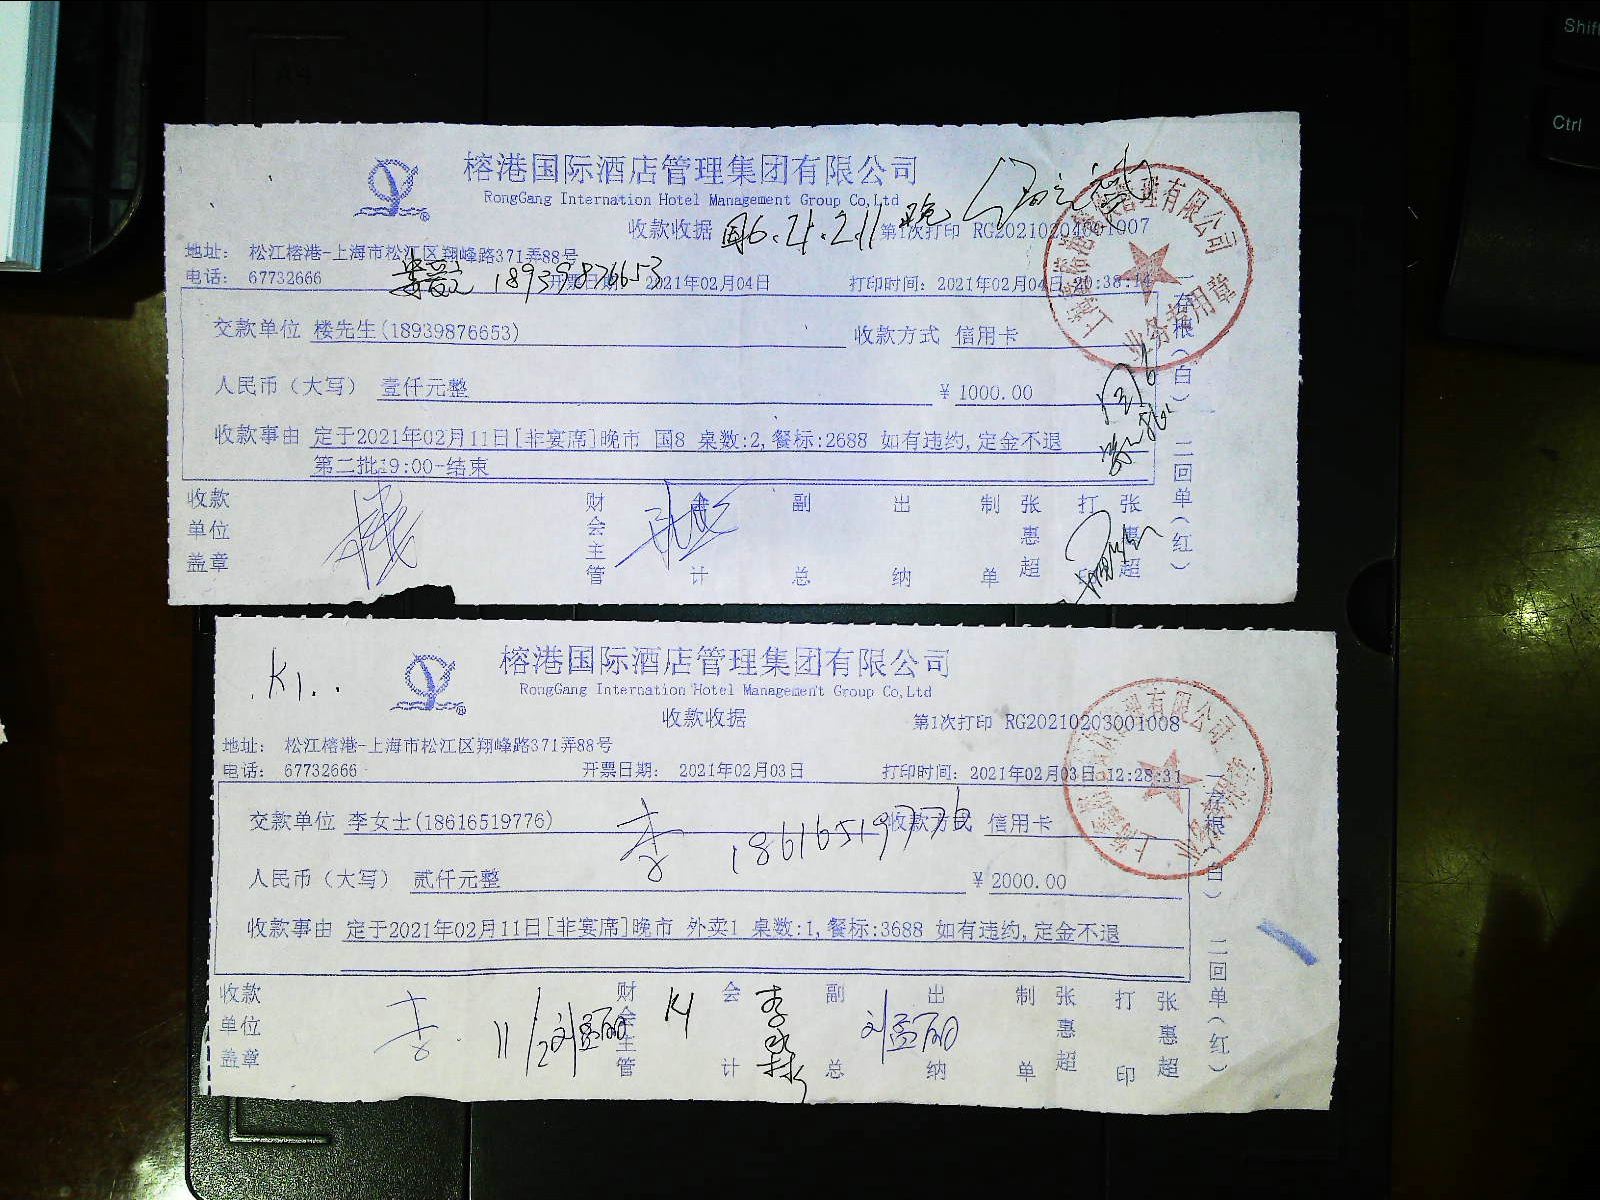 Shift
Ctrl
A4
榕港国际酒店管理集团有限公司
RongGang Internation Hotel Management Group Co,Ltd
收款收据
第1次打印 RG20210204001007
地址: 松江榕港-上海市松江区翔峰路371弄88号
电话: 67732666 18939876653 开票日期: 2021年02月04日 打印时间: 2021年02月04日 20:38:14
交款单位 楼先生(18939876653) 收款方式 信用卡
人民币(大写) 壹仟元整 ¥ 1000.00
收款事由 定于2021年02月11日[非宴席]晚市 国8 桌数:2,餐标:2688 如有违约,定金不退
第二批19:00-结束
收款单位盖章 财会主管 会计 副总 出纳 制单 张惠超 打印 张惠超
一存根(白) 二回单(红)
业务专用章
K1..
榕港国际酒店管理集团有限公司
RongGang Internation Hotel Management Group Co,Ltd
收款收据
第1次打印 RG20210203001008
地址: 松江榕港-上海市松江区翔峰路371弄88号
电话: 67732666 开票日期: 2021年02月03日 打印时间: 2021年02月03日 12:28:31
交款单位 李女士(18616519776) 李 18616519776 收款方式 信用卡
人民币(大写) 贰仟元整 ¥ 2000.00
收款事由 定于2021年02月11日[非宴席]晚市 外卖1 桌数:1,餐标:3688 如有违约,定金不退
收款单位盖章 李 11/2 财会主管 K1 会计 副总 出纳 制单 张惠超 打印 张惠超
一存根(白) 二回单(红)